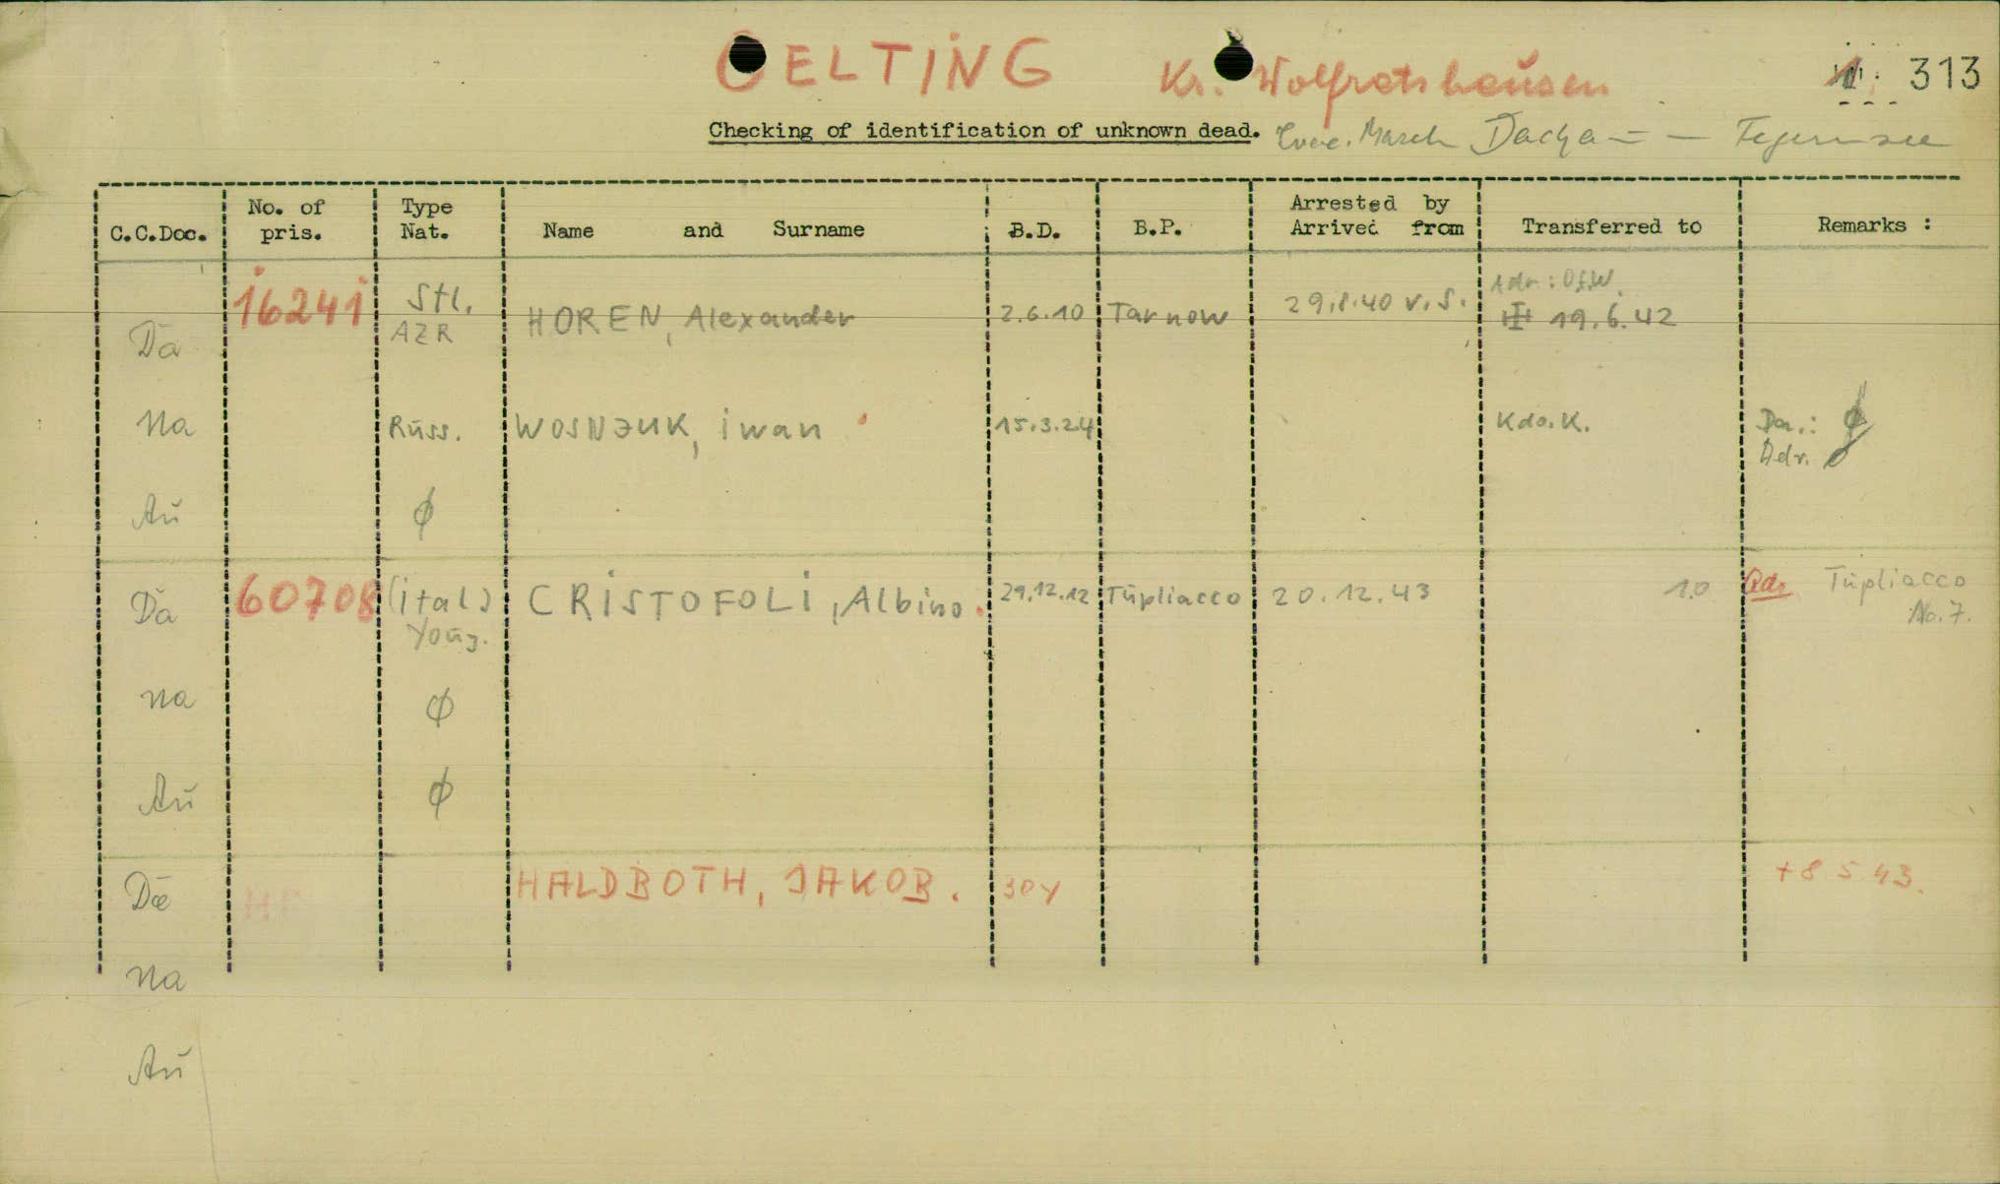 OELTING Kr. Wolfratshausen 313
Checking of identification of unknown dead. Evac. March Dachau — Tegernsee
C.C.Doc. No. of pris. Type Nat. Name and Surname B.D. B.P. Arrested by Arrived from Transferred to Remarks :
Da 16241 Stl. AZR HOREN, Alexander 2.6.10 Tarnow 29.8.40 v.S. Adr.: OfW. 19.6.42
Na Russ. WOSNJUK, iwan 15.3.24 Kdo.K. Da.: ϕ
Adr. ϕ
Au ϕ
Da 60708 (ital) Youg. CRISTOFOLI, Albino. 29.12.12 Tüpliacco 20.12.43 10 Adr Tüpliacco
No.7.
Na ϕ
Au ϕ
Da HALDBOTH, JAKOB. 30y +8 5 43.
Na
Au